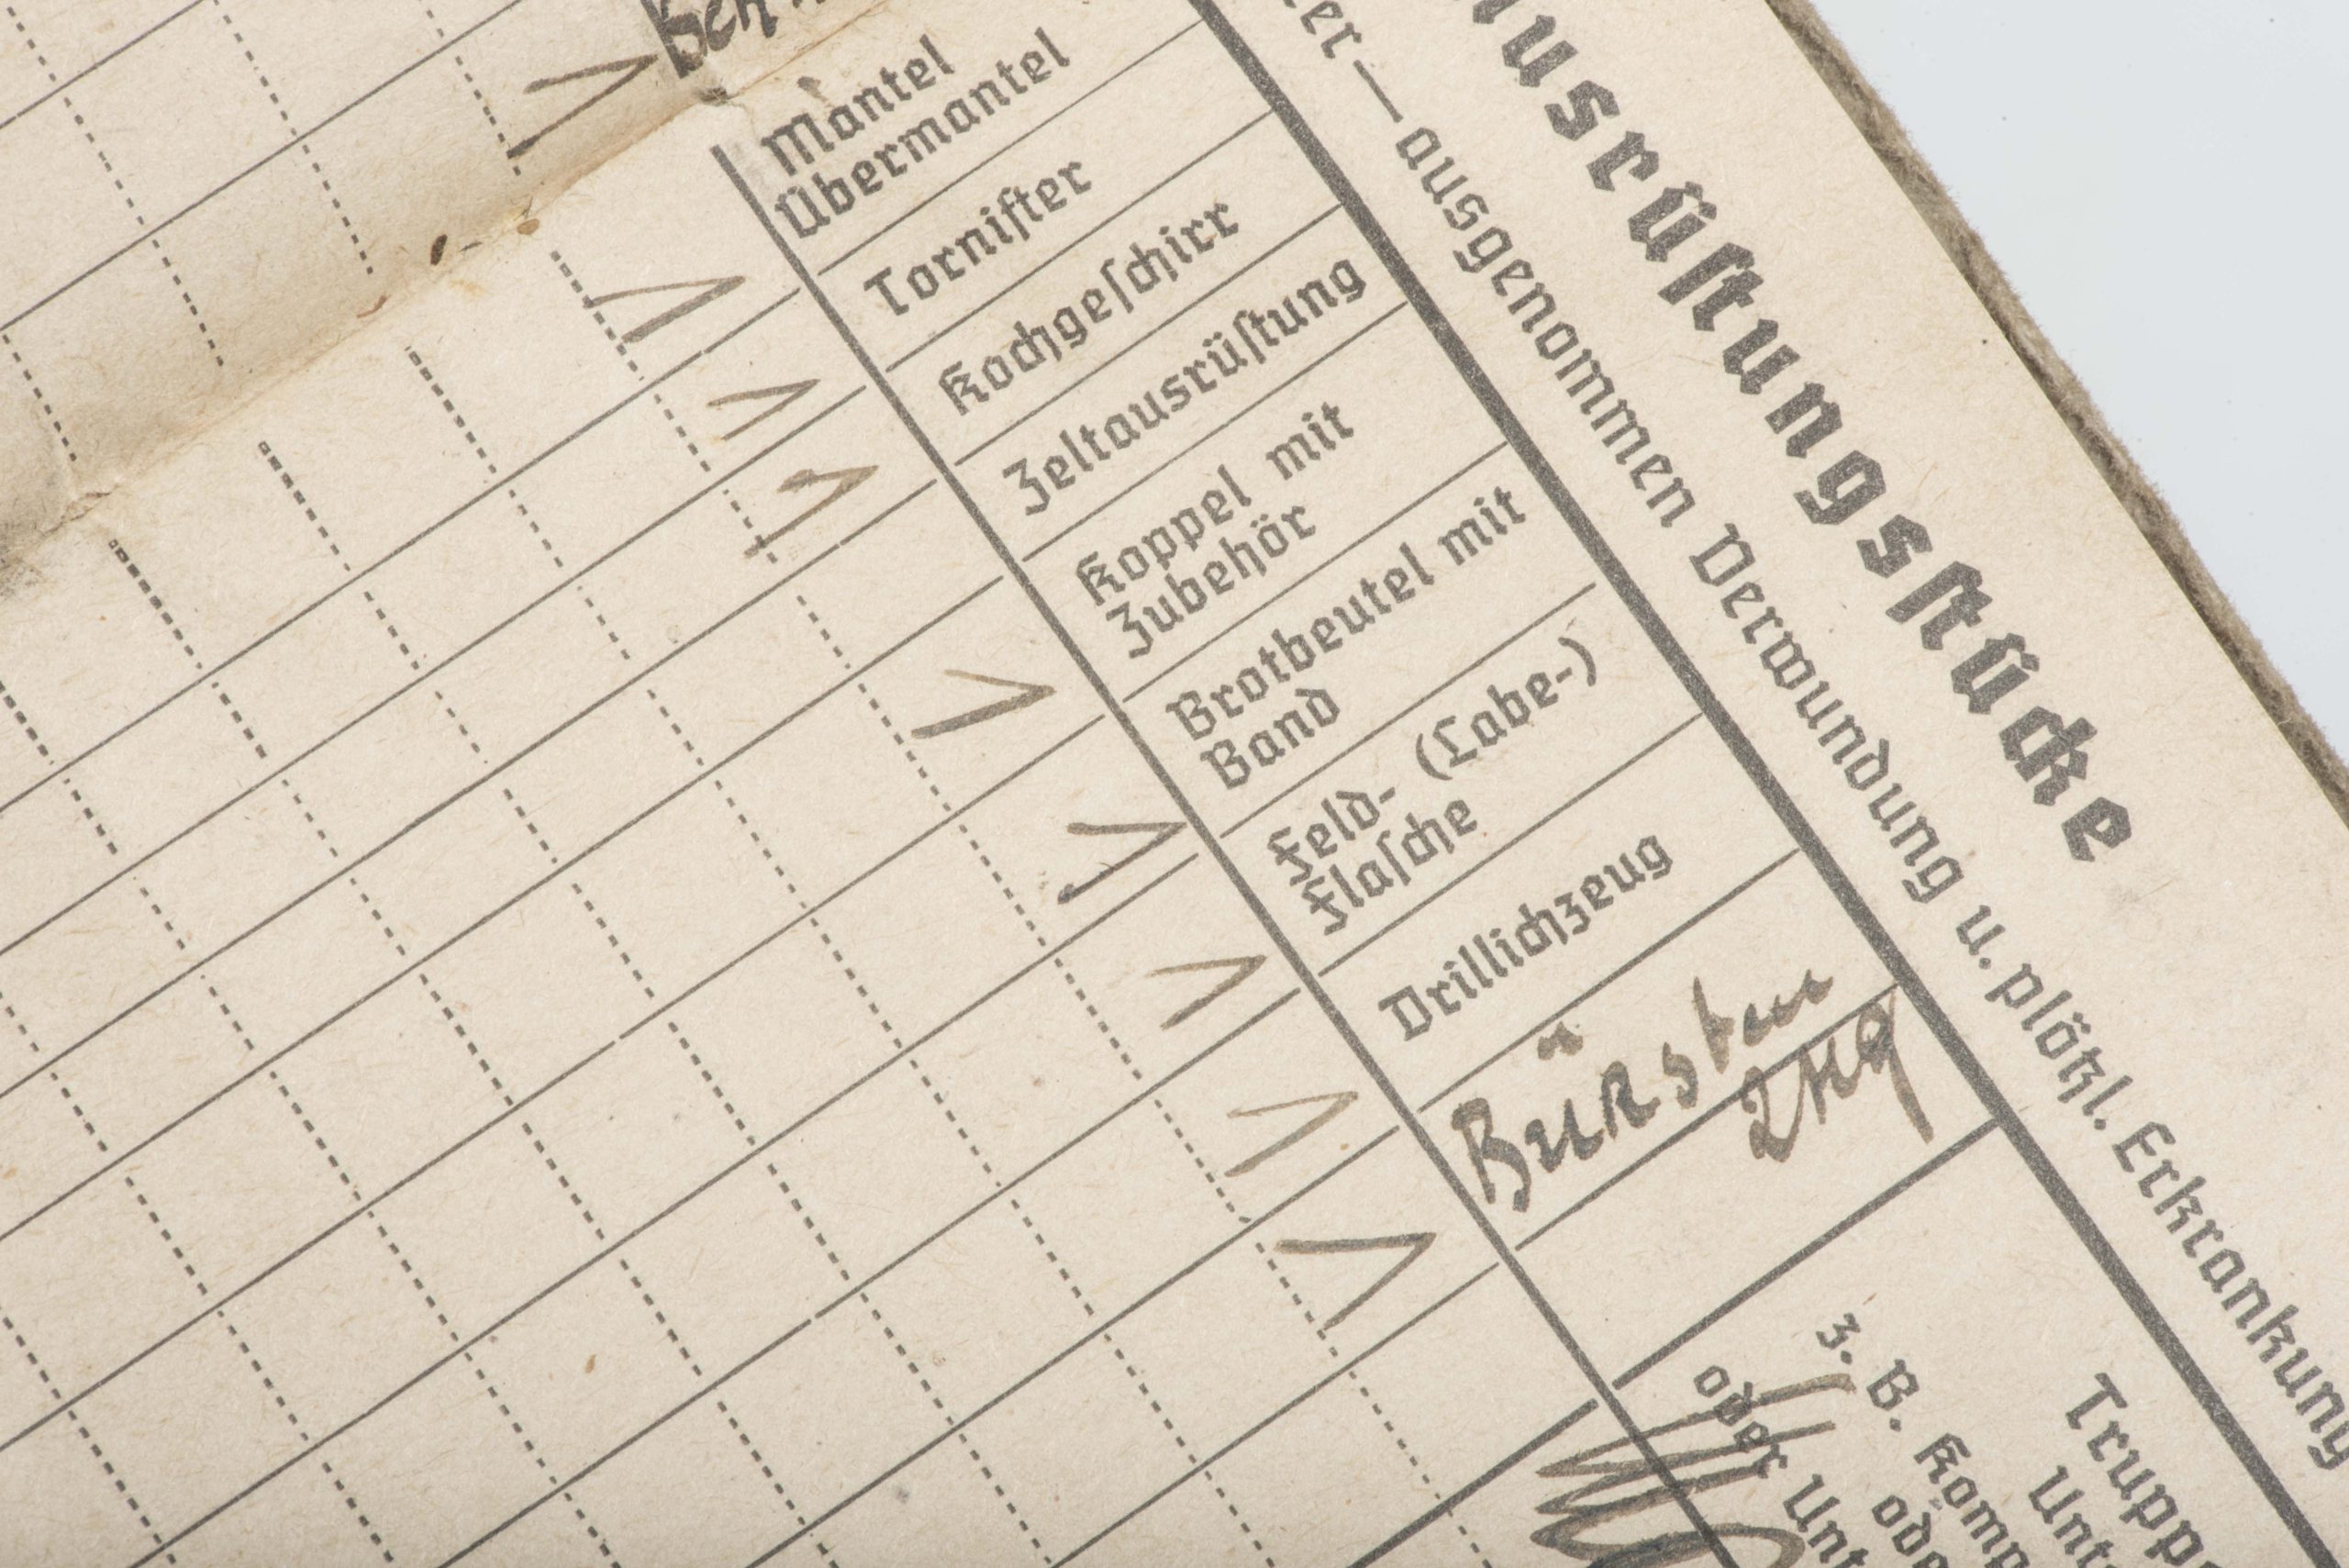 usrüstungsstücke
er — ausgenommen Verwundung u. plötzl. Erkrankung
Sch
1
Mantel
Übermantel
1
Tornister
1
Kochgeschirr
1
Zeltausrüstung
Koppel mit
Zubehör
1
Brotbeutel mit
Band
1
Feld- (Labe-)
Flasche
1
Drillichzeug
1
Bürsten
1
Trupp
Unt
z. B. Komp
ode
oder Unt